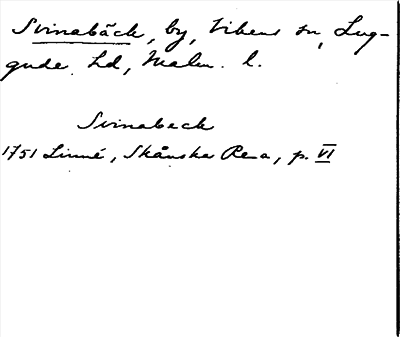 Svinabäck, by, Vikens sn, Lug-
gude hd, Malm. l.
Svinabeck
1751 Linné, Skånska Resa, p. VI